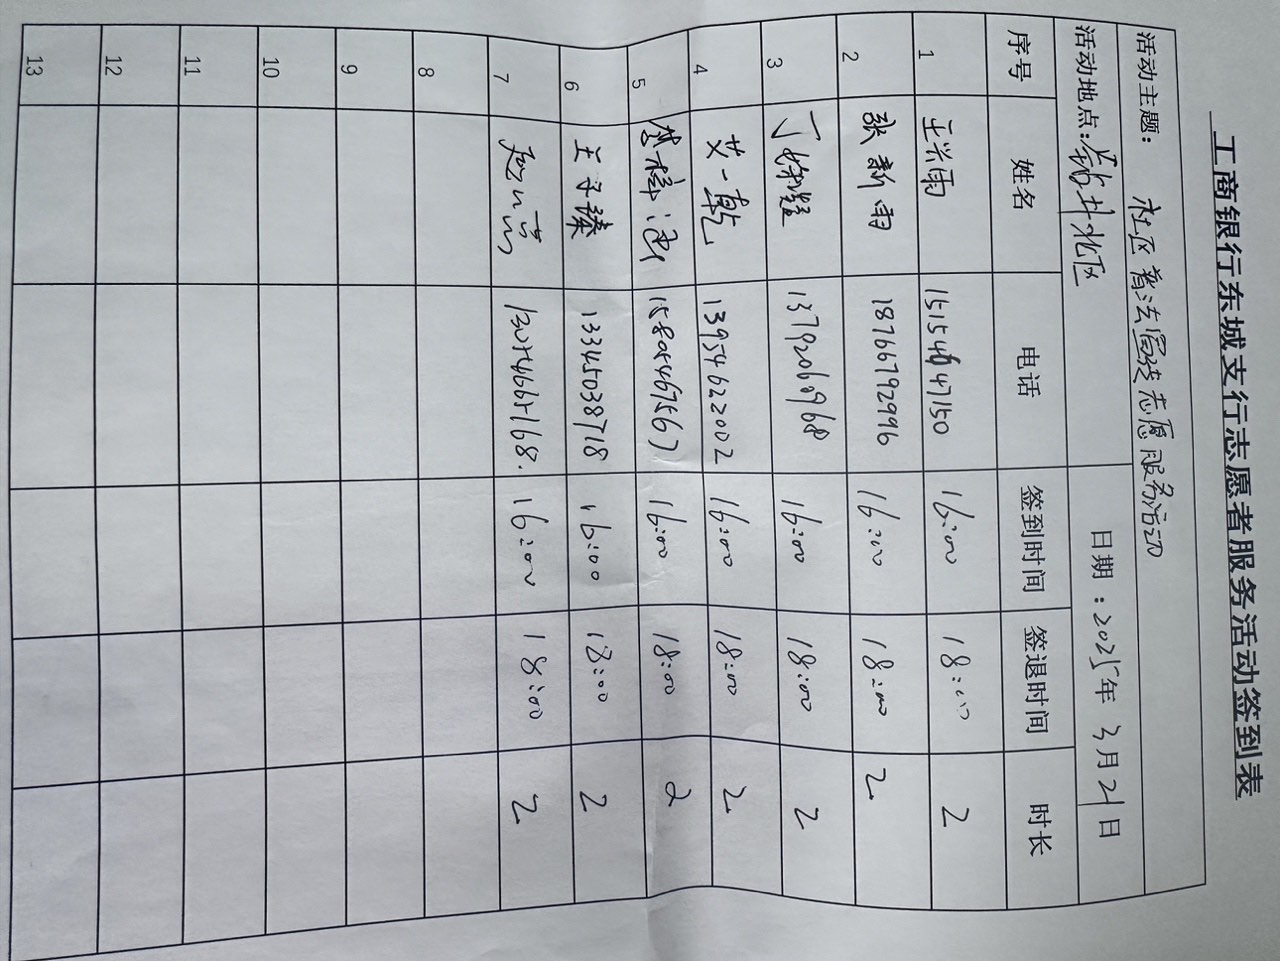 工商银行东城支行志愿者服务活动签到表
活动主题： 社区普法宣传志愿服务活动
活动地点：北区 日期：2025年 3月21日
序号 姓名 电话 签到时间 签退时间 时长
1 王兴雨 15154147150 16:00 18:00 2
2 张新雨 18766792996 16:00 18:00 2
3 丁 13792060968 16:00 18:00 2
4 艾一乾 13954622002 16:00 18:00 2
5 15805467567 16:00 18:00 2
6 王子臻 13345038718 16:00 18:00 2
7 16:00 18:00 2
8
9
10
11
12
13